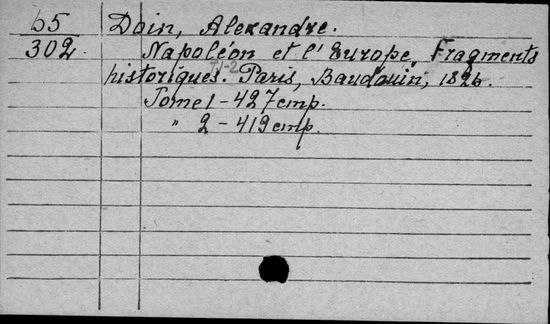 65 Doin, Alexandre.
302 Napoléon et l'Europe. Fragments
historiques. T.1-2 Paris, Baudouin, 1826.
Tome 1 - 427 cmp.
" 2 - 419 cmp.